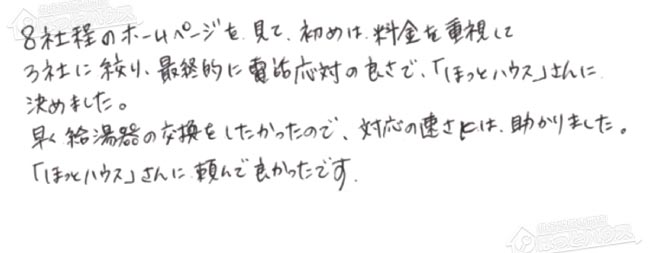 8社程のホームページを見て、初めは、料金を重視して
3社に絞り、最終的に電話応対の良さで、「ほっとハウス」さんに
決めました。
早く給湯器の交換をしたかったので、対応の速さには、助かりました。
「ほっとハウス」さんに頼んで良かったです。
ほっとハウス